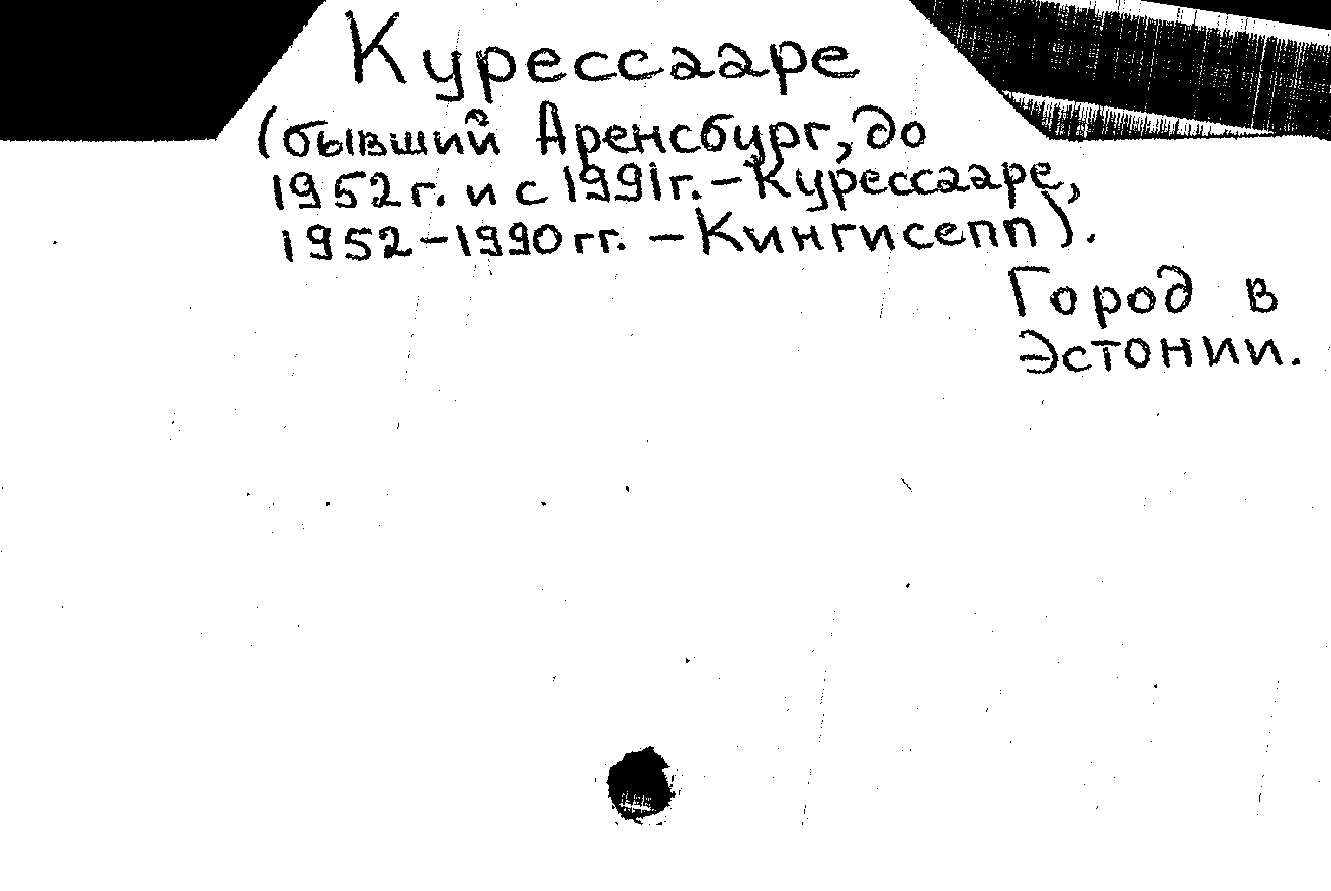 Курессааре
(бывший Аренсбург, до
1952г. и с 1991г. – Курессааре,
1952 – 1990 гг. – Кингисепп).
Город в
Эстонии.